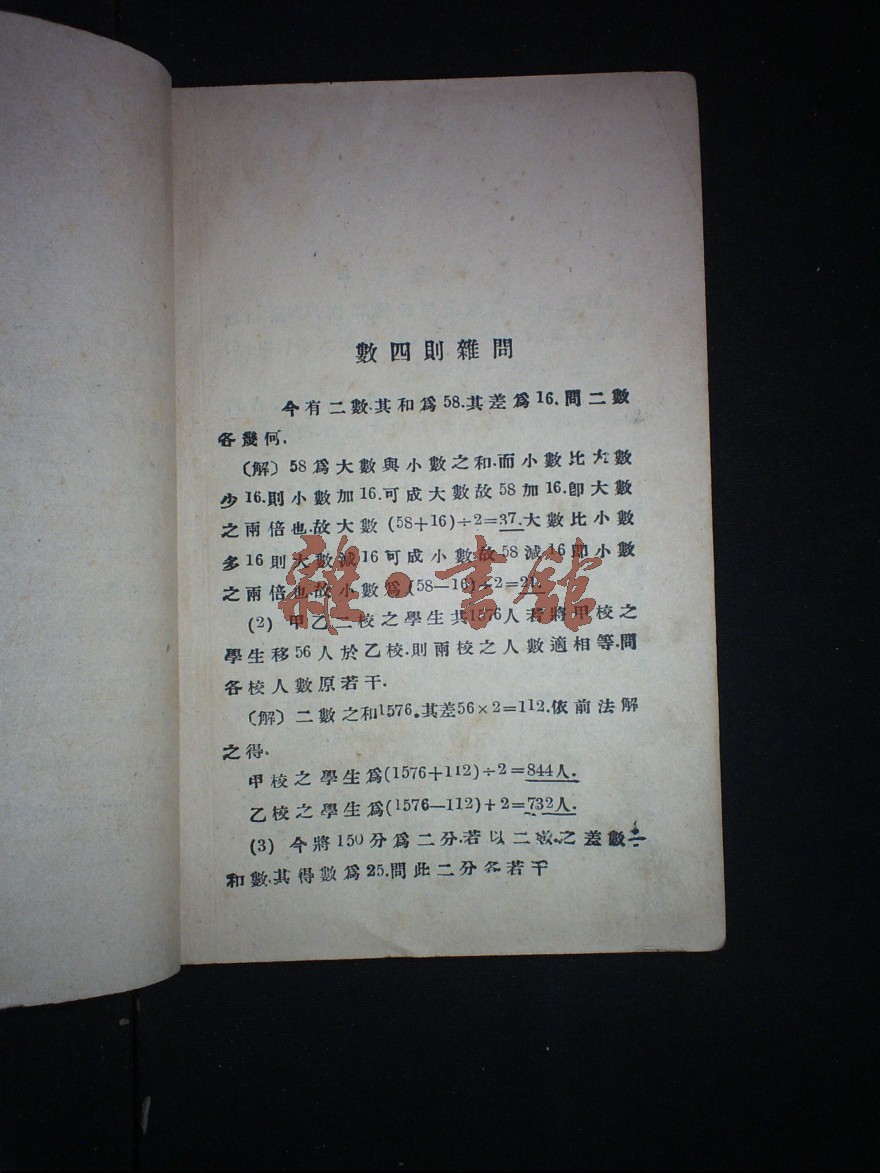 數四則雜問
今有二數.其和爲58.其差爲16.問二數
各幾何.
〔解〕58爲大數與小數之和.而小數比大數
少16.則小數加16.可成大數故58加16.卽大數
之兩倍也.故大數(58+16)÷2=37.大數比小數
多16則大數減16可成小數.故58減16卽小數
之兩倍也.故小數爲(58—16)÷2=21.
(2) 甲乙二校之學生共1576人若將甲校之
學生移56人於乙校.則兩校之人數適相等.問
各校人數原若干.
〔解〕二數之和1576.其差56×2=112.依前法解
之得.
甲校之學生爲(1576+112)÷2=844人.
乙校之學生爲(1576—112)+2=732人.
(3) 今將150分爲二分.若以二數之差數÷
和數.其得數爲25.問此二分各若干
雜·書館